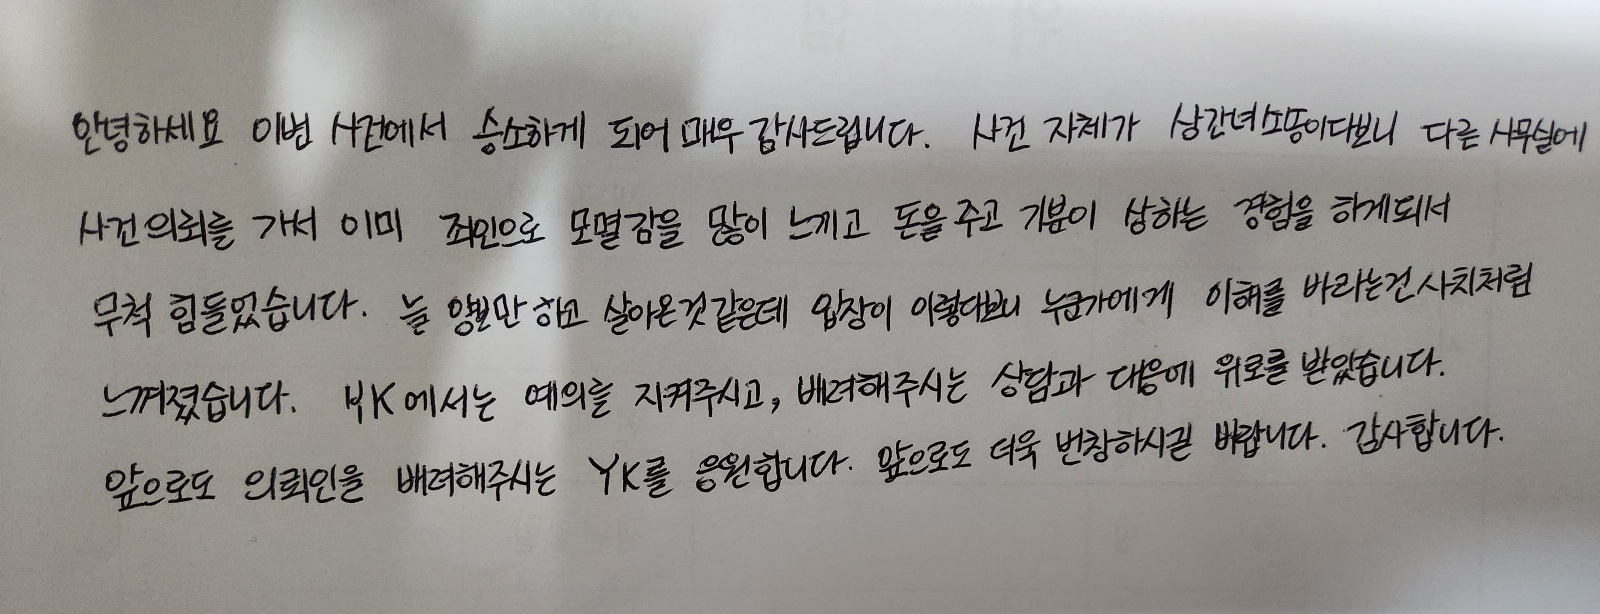 안녕하세요 이번 사건에서 승소하게 되어 매우 감사드립니다. 사건 자체가 상간녀소송이다보니 다른 사무실에
사건의뢰를 가서 이미 죄인으로 모멸감을 많이 느끼고 돈을 주고 기분이 상하는 경험을 하게되서
무척 힘들었습니다. 늘 양보만 하고 살아온것 같은데 입장이 이렇다보니 누군가에게 이해를 바라는건 사치처럼
느껴졌습니다. YK에서는 예의를 지켜주시고, 배려해주시는 상담과 대응에 위로를 받았습니다.
앞으로도 의뢰인을 배려해주시는 YK를 응원합니다. 앞으로도 더욱 번창하시길 바랍니다. 감사합니다.